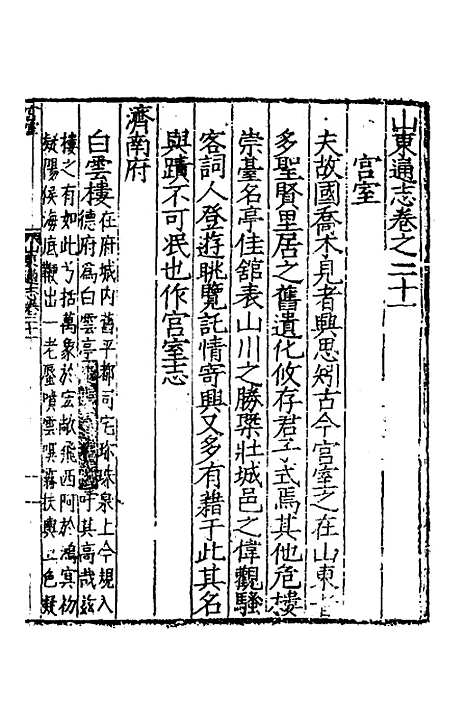 山東通志卷之二十一
宮室
夫故國喬木見者興思矧古今宮室之在山東者
多聖賢里居之舊遺化攸存君子式焉其他危樓
崇臺名亭佳舘表山川之勝槩壯城邑之偉觀騷
客詞人登遊眺覽託情寄興又多有藉于此其名
與蹟不可泯也作宮室志
濟南府
白雲樓在府城内舊平都司宅珍珠泉上今規入
德府爲白雲亭呼其高哉兹
樓之有如此兮括萬象於宏敞飛西阿於鴻冥枌
疑陽侯海底鞭出一老蜃噴雲噀霧扶輿五色凝